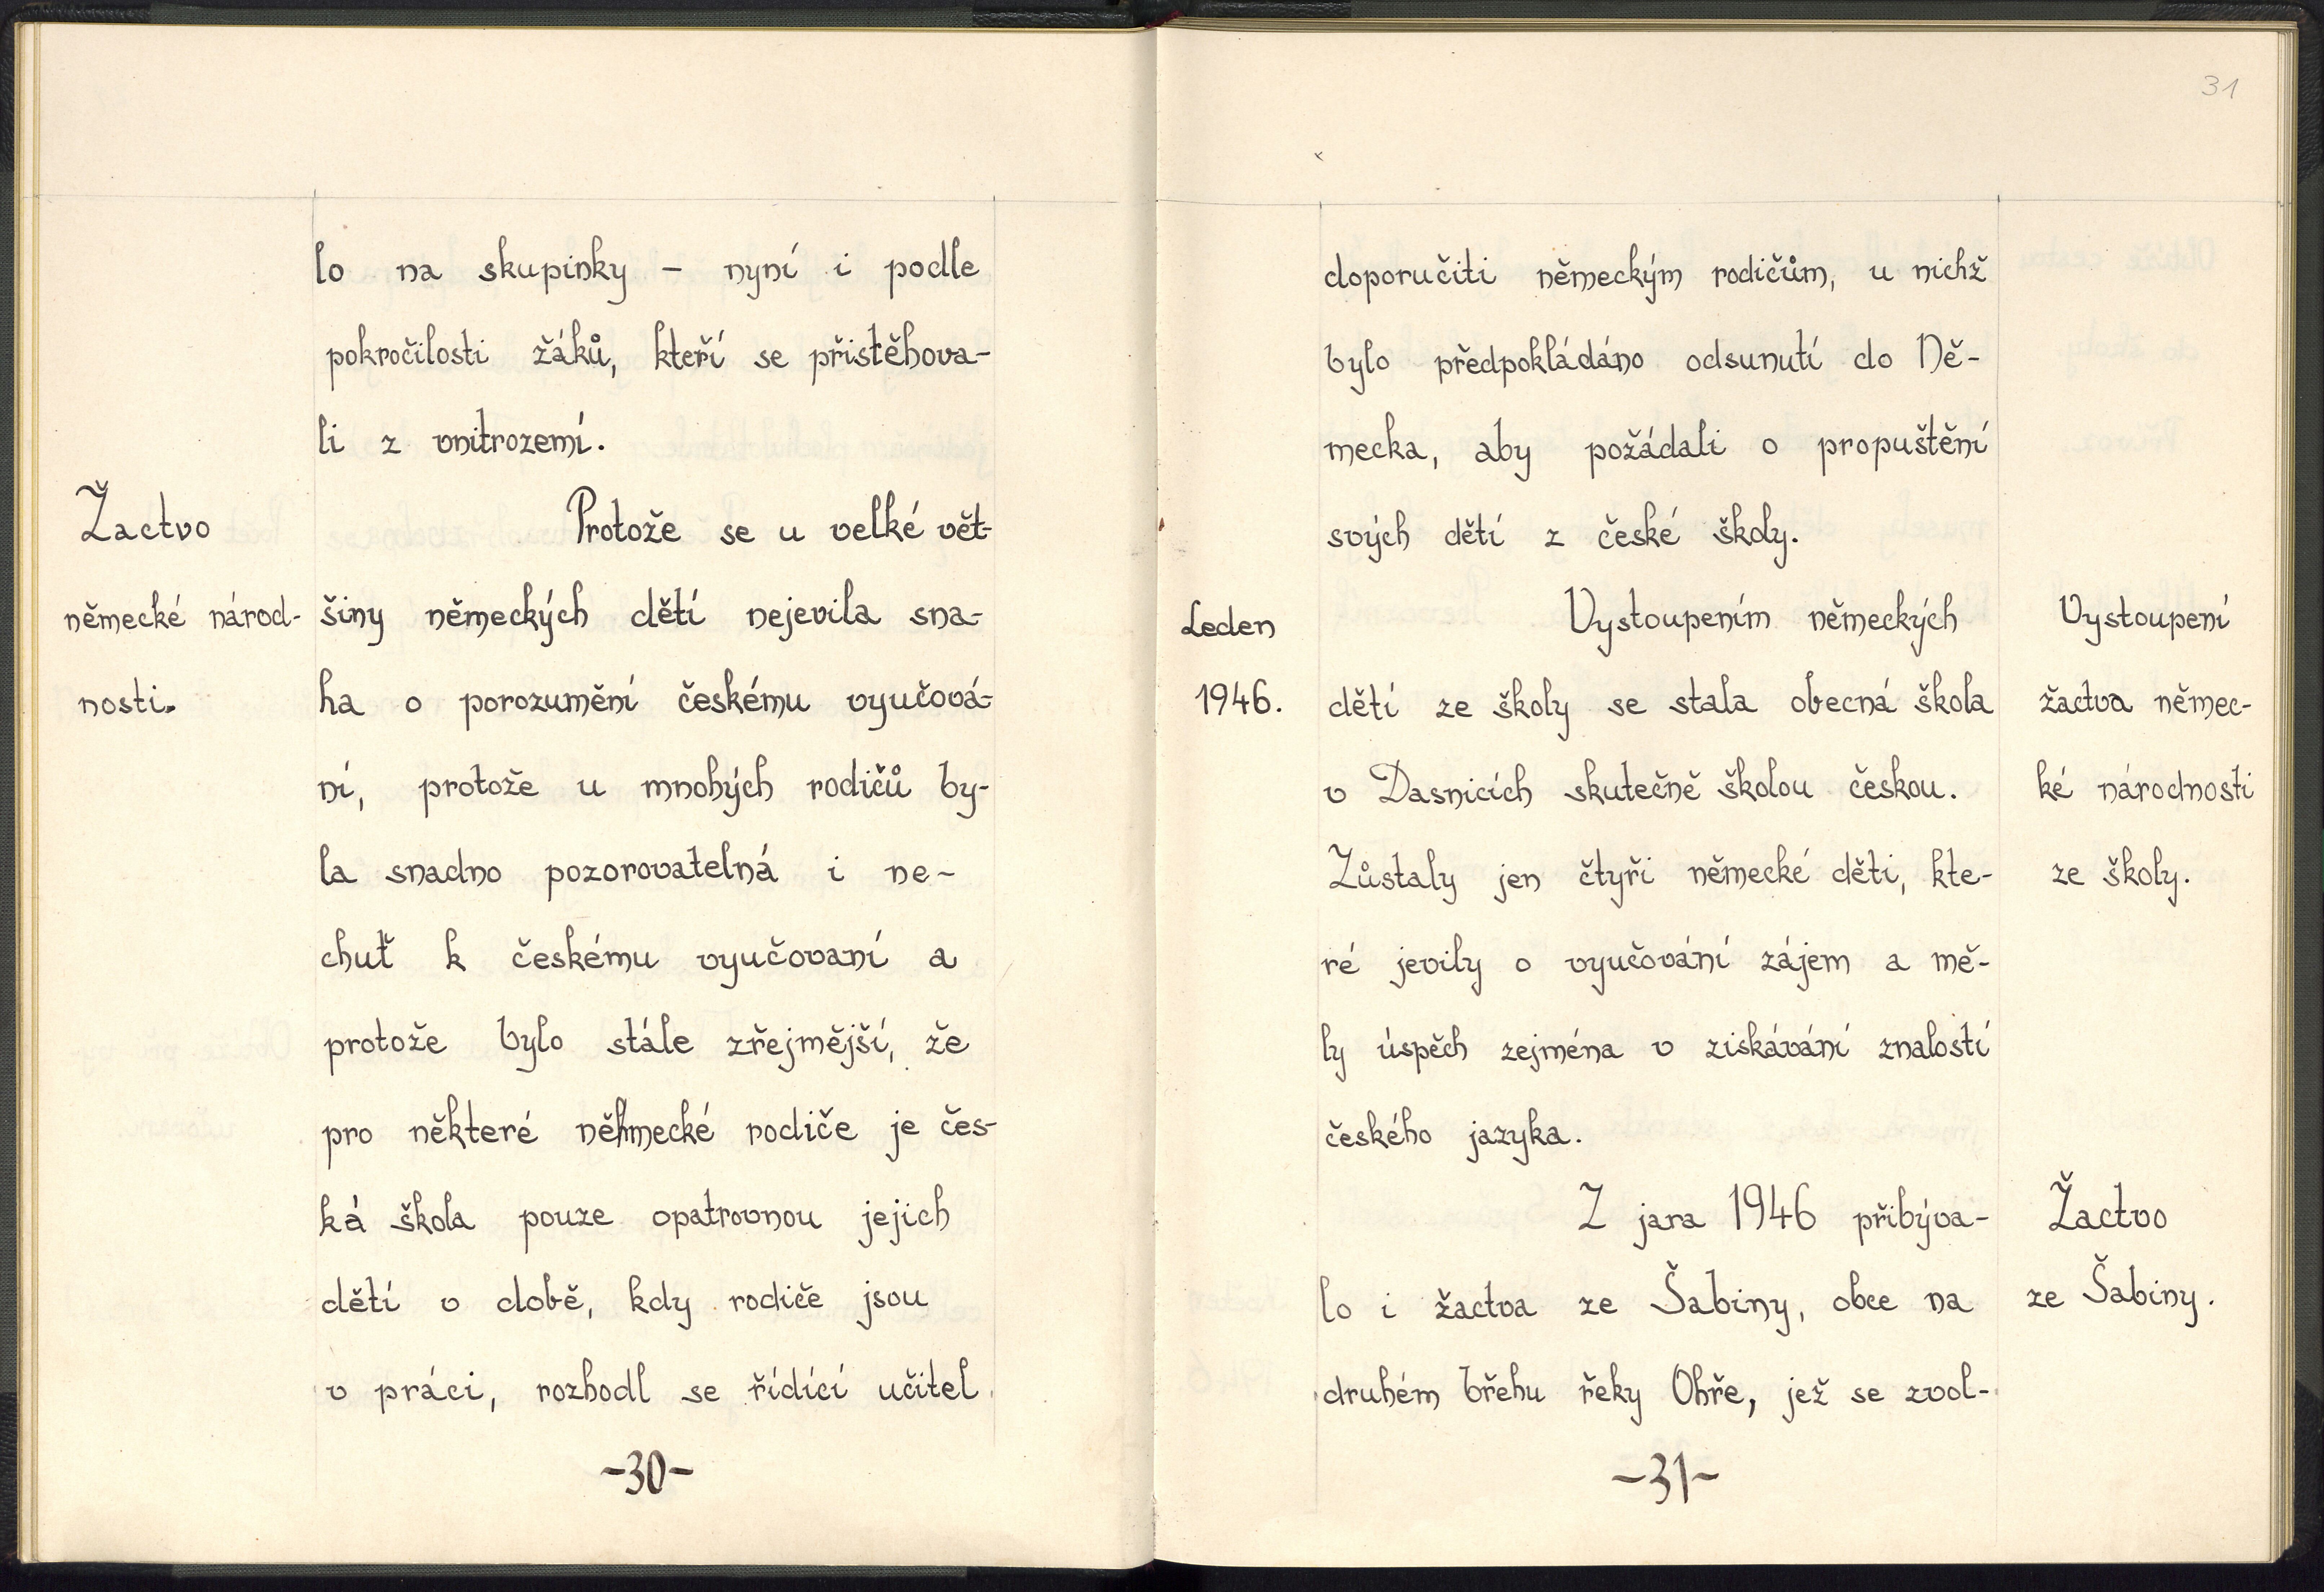 lo na skupinky – nyní i podle
pokročilosti žáků, kteří se přistěhova-
li z vnitrozemí.
Žactvo
německé národ-
nosti.
Protože se u velké vět-
šiny německých dětí nejevila sna-
ha o porozumění českému vyučová-
ní, protože u mnohých rodičů by-
la snadno pozorovatelná i ne-
chuť k českému vyučovaní a
protože bylo stále zřejmější, že
pro některé německé rodiče je čes-
ká škola pouze opatrovnou jejich
dětí v době, kdy rodiče jsou
v práci, rozhodl se řídící učitel
-30-
31
doporučiti německým rodičům, u nichž
bylo předpokládáno odsunutí do Ně-
mecka, aby požádali o propuštění
svých dětí z české školy.
Leden
1946.
Vystoupením německých
dětí ze školy se stala obecná škola
v Dasnicích skutečně školou českou.
Zůstaly jen čtyři německé děti, kte-
ré jevily o vyučování zájem a mě-
ly úspěch zejména v získávání znalostí
českého jazyka.
Vystoupení
žactva němec-
ké národnosti
ze školy.
Z jara 1946 přibýva-
lo i žactva ze Šabiny, obce na
druhém břehu řeky Ohře, jež se zvol-
Žactvo
ze Šabiny.
-31-